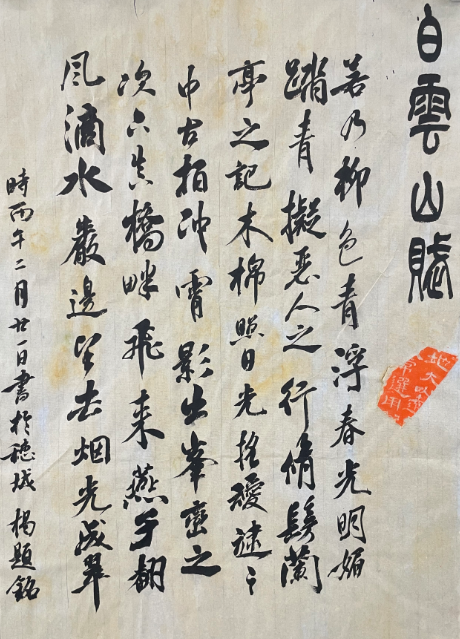 白雲山賦
若乃柳色青浮春光明媚
踏青擬人之行脩蘭
亭之記木棉照日光搖靉靆之
中古柏沖霄影出峯巒之
次六真橋畔飛來燕子翻
風滴水巖邊望去烟光成翠
時丙午二月廿一日書於穗城 楊題銘